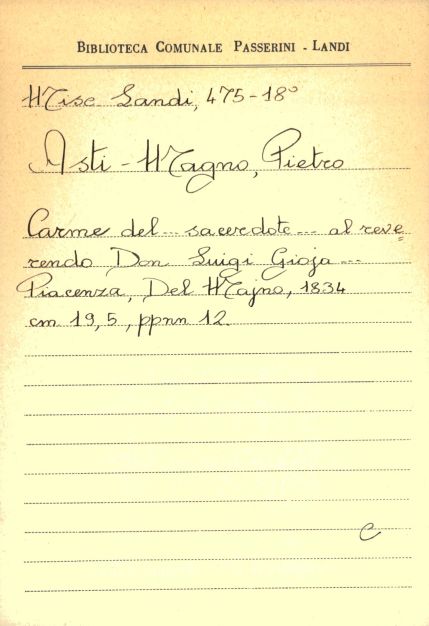 BIBLIOTECA COMUNALE PASSERINI - LANDI
Misc Landi, 475-18°
Asti - Magno, Pietro
Carme del... sacerdote... al reve
rendo Don Luigi Gioja...
Piacenza, Del Majno, 1834
cm 19,5, ppnn 12.
C